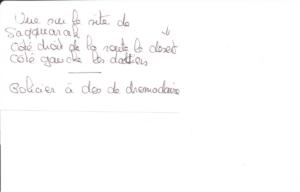 Vue sur le site de
Sagquarah
côté droit de la route le desert
côté gauche les dattiers
Policier à dos de dromadaire